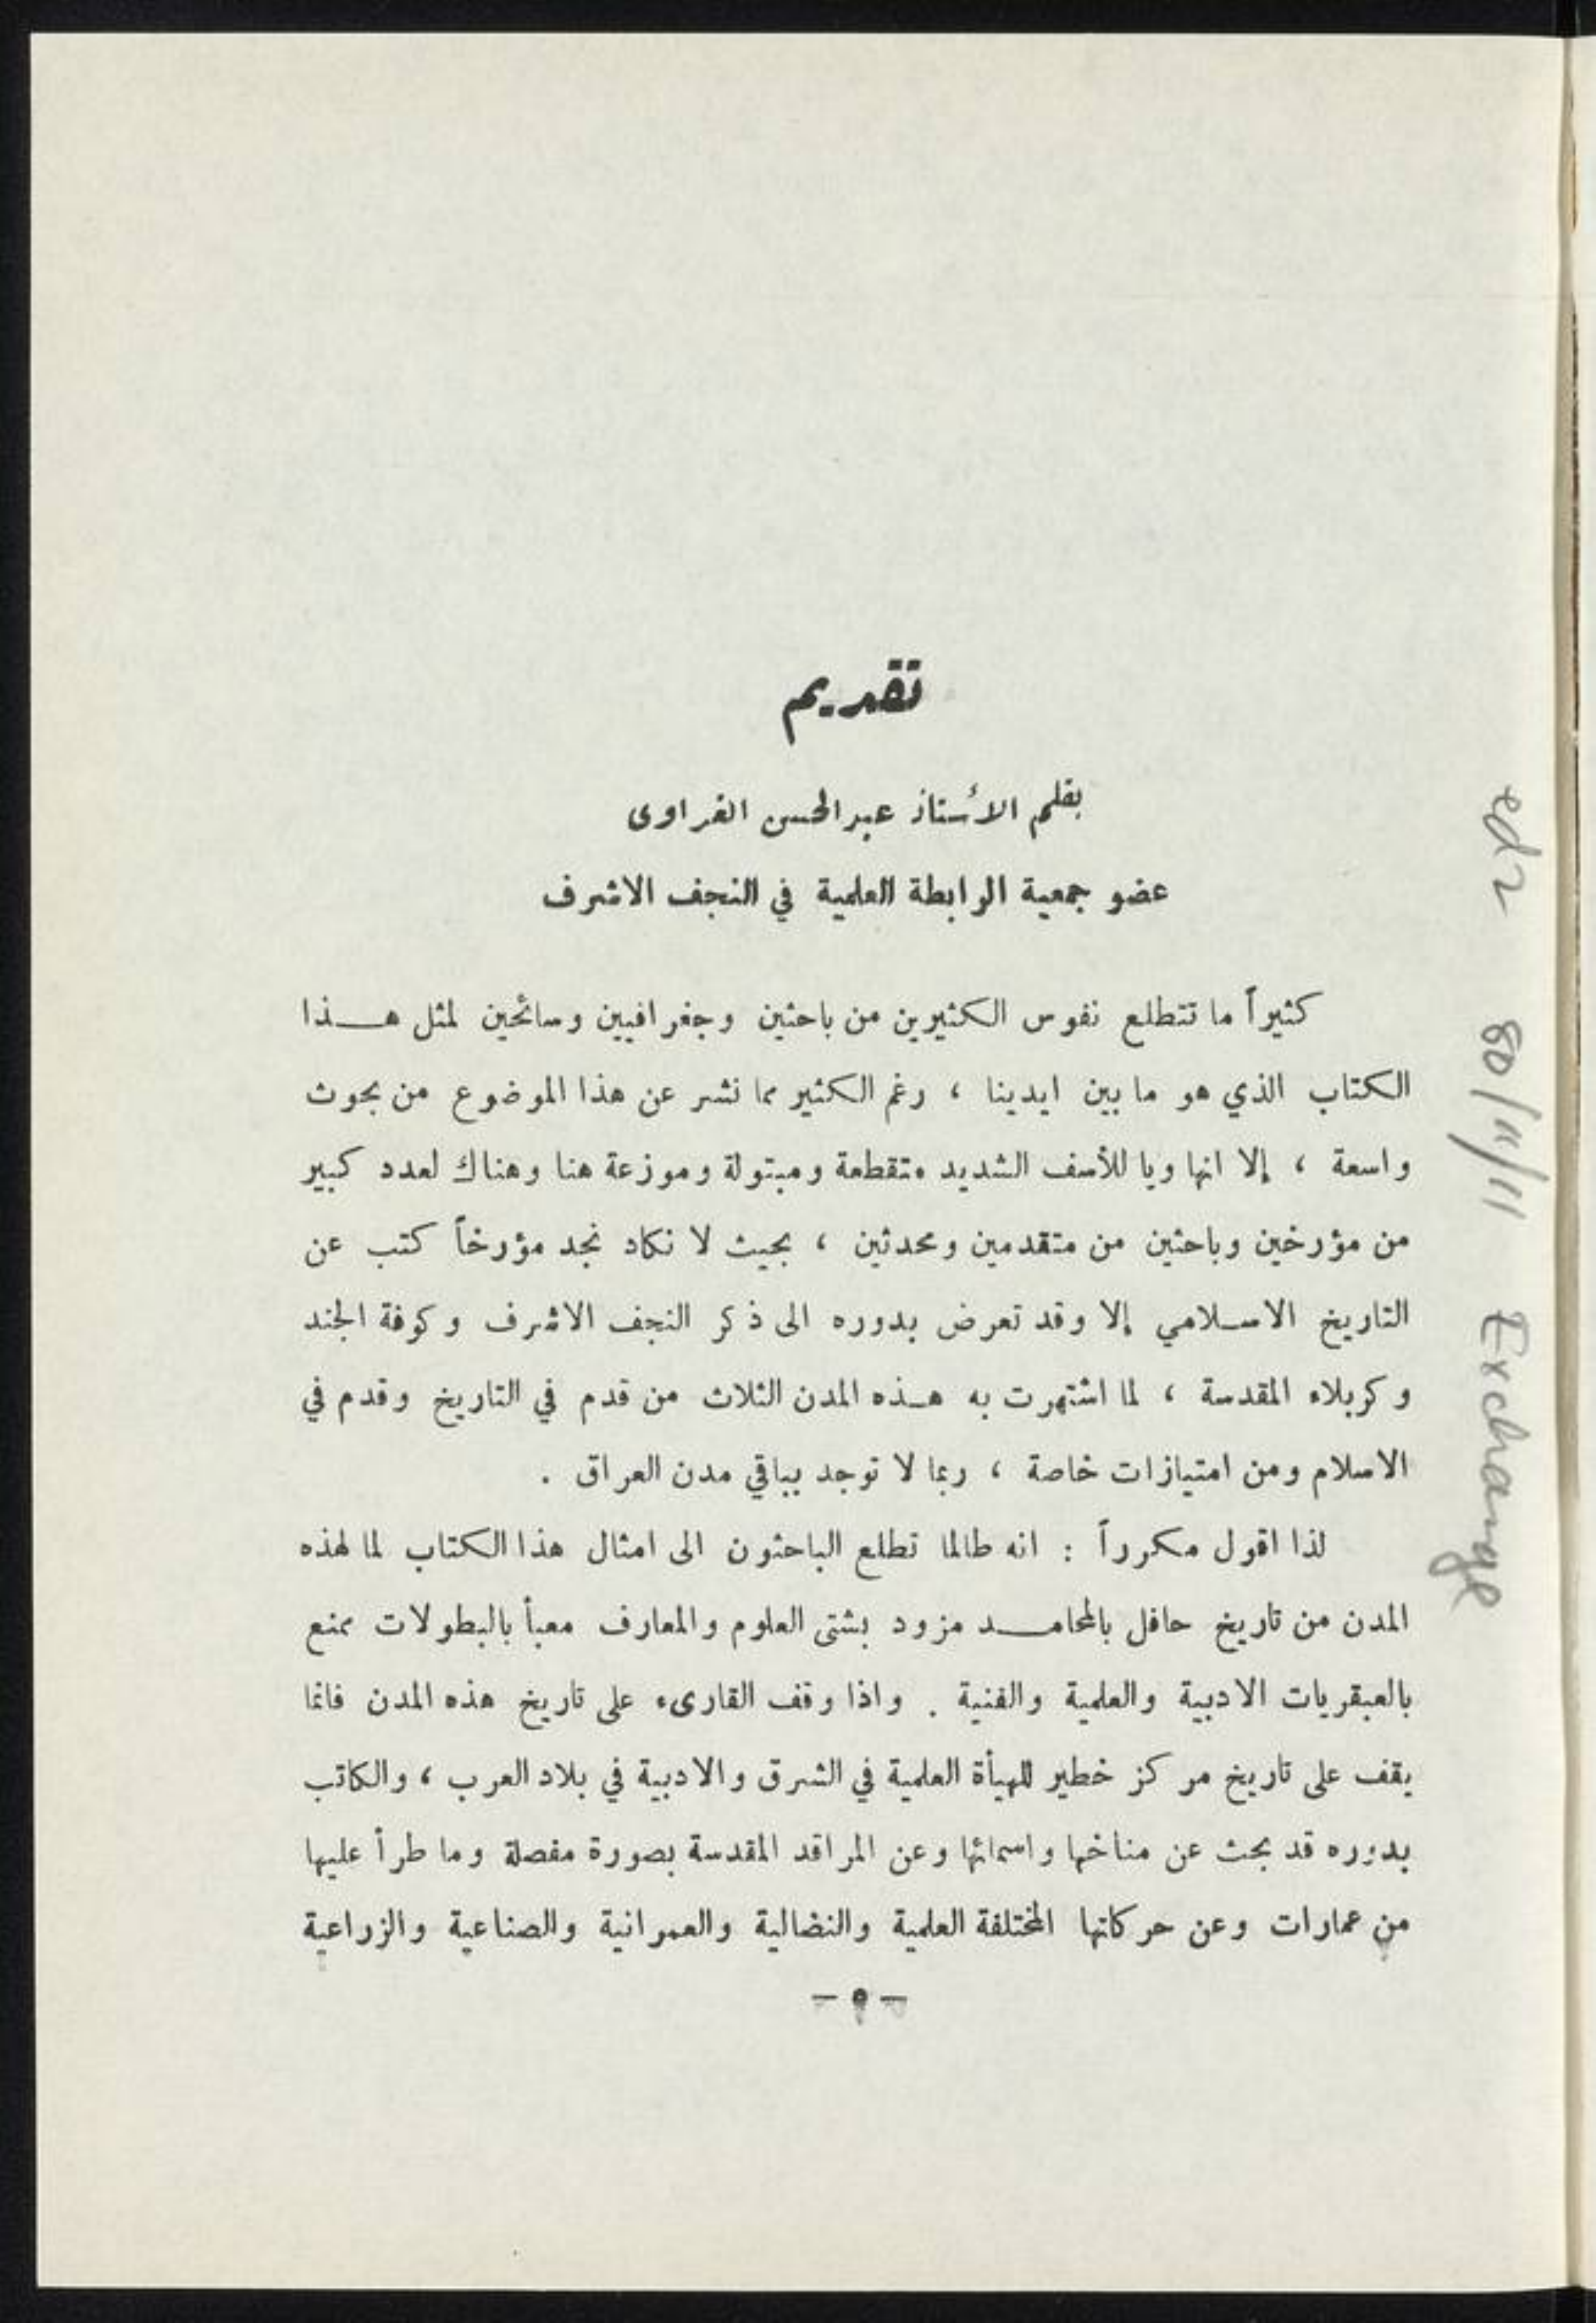 تقديم
بقلم الأستاذ عبد المحسن الغراوى
عضو جمعية الرابطة العلمية في النجف الاشرف
كثيراً ما تتطلع نفوس الكثيرين من باحثين وجغرافيين وسائحين لمثل هــذا
الكتاب الذي هو ما بين ايدينا ، رغم الكثير مما نشر عن هذا الموضوع من بحوث
واسعة ، إلا انها ويا للأسف الشديد متقطعة ومبتولة وموزعة هنا وهناك لعدد كبير
من مؤرخين وباحثين من متقدمين ومحدثين ، بحيث لا نكاد نجد مؤرخاً كتب عن
التاريخ الاسـلامي إلا وقد تعرض بدوره الى ذكر النجف الاشرف وكوفة الجند
وكربلاء المقدسة ، لما اشتهرت به هـذه المدن الثلاث من قدم في التاريخ وقدم في
الاسلام ومن امتيازات خاصة ، ربما لا توجد بباقي مدن العراق .
لذا اقول مكرراً : انه طالما تطلع الباحثون الى امثال هذا الكتاب لما لهذه
المدن من تاريخ حافل بالمحامــد مزود بشتى العلوم والمعارف معبأ بالبطولات ممنع
بالعبقريات الادبية والعلمية والفنية . واذا وقف القارىء على تاريخ هذه المدن فانما
يقف على تاريخ مركز خطير للهيأة العلمية في الشرق والادبية في بلاد العرب ، والكاتب
بدوره قد بحث عن مناخها واسمائها وعن المراقد المقدسة بصورة مفصلة وما طرأ عليها
من عمارات وعن حركاتها المختلفة العلمية والنضالية والعمرانية والصناعية والزراعية
— ٥ —
80/11/11 Exchange